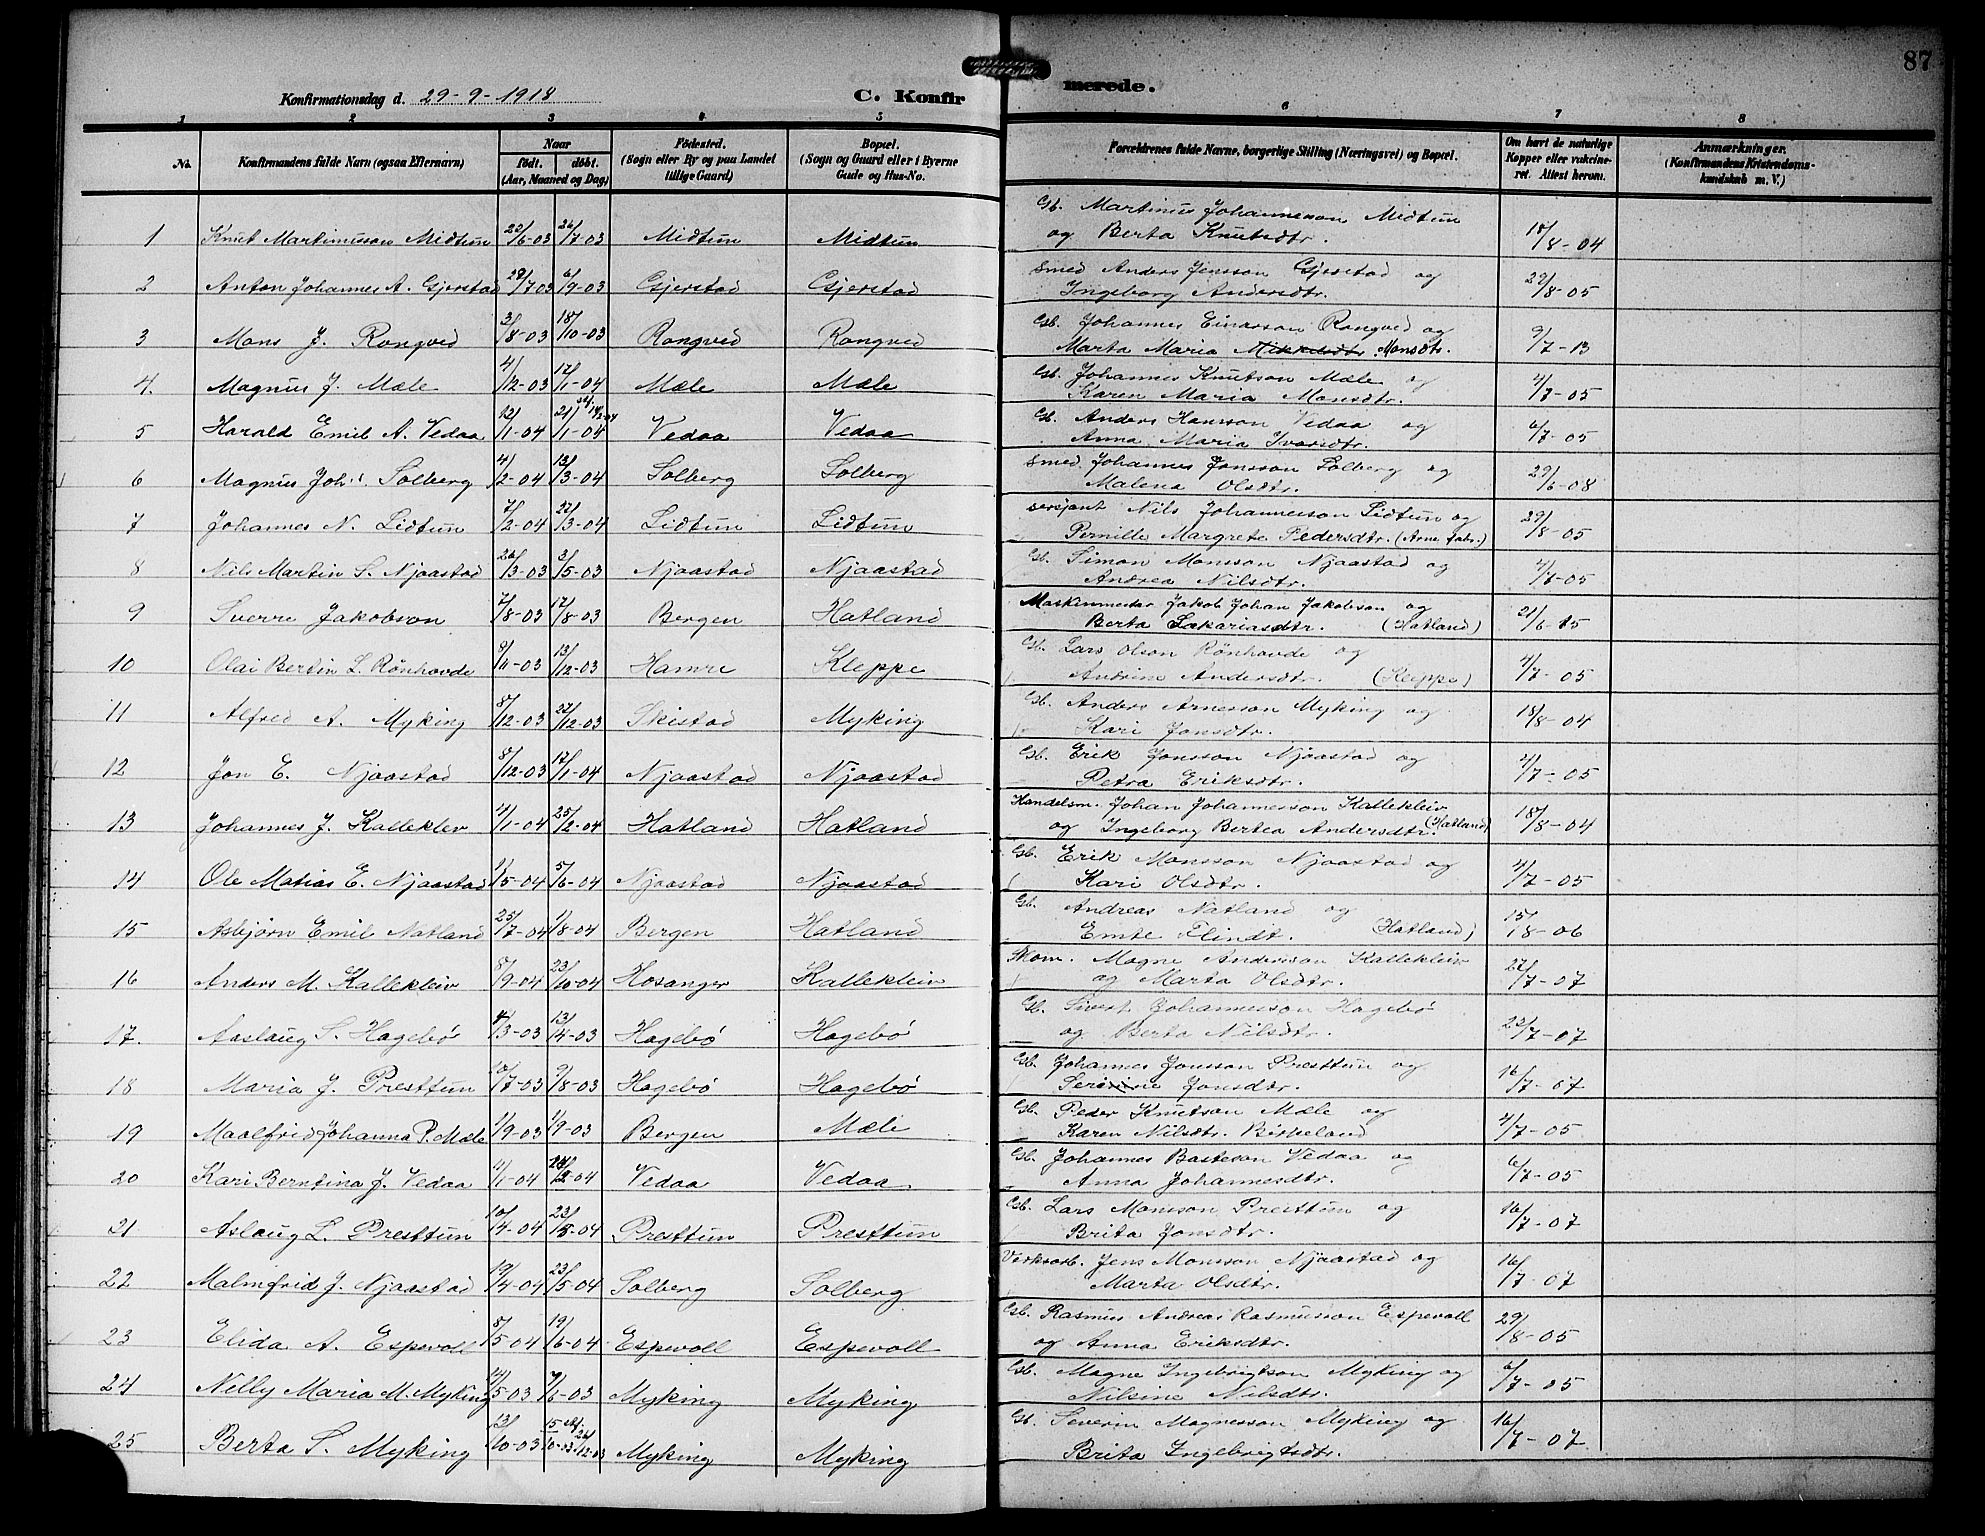 87
Konfirmationsdag d. 29-9-1918
C. Konfirmerede.
1 2 3 4 5 6 7 8
No. Konfirmandens fulde Navn (ogsaa Efternavn) Naar født. døbt. (Aar, Maaned og Dag) Fødested. (Sogn eller By og paa Landet tillige Gaard) Bopæl. (Sogn og Gaard eller i Byerne Gade og Hus-No. Forældrenes fulde Navne, borgerlige Stilling (Næringsvei) og Bopæl. Om havt de naturlige Kopper eller vakcineret. Attest herom. Anmærkninger. (Konfirmandens Kristendomskundskab m. V.)
1 Knut Martinusson Midtun 22/6-03 26/7-03 Midtun Midtun Gb. Martinus Johannesson Midtun
og Berta Knutsdtr. 18/8-04
2 Anton Johannes A. Gjerstad 29/7-03 6/9-03 Gjerstad Gjerstad Smed Anders Jensson Gjerstad og
Ingeborg Andersdtr. 29/8-05
3 Mons J. Rongved 3/8-03 18/10-03 Rongved Rongved Gb. Johannes Einarsson Rongved og
Marta Maria Mikkelsdtr. Monsdtr. 9/7-13
4. Magnus J. Mæle 4/12-03 17/1-04 Mæle Mæle Gb. Johannes Knutson Mæle og
Karen Maria Monsdtr. 4/7-05
5 Harald Emil A. Vedaa 12/1-04 21/1-04 Vedaa Vedaa Gb. Anders Hansson Vedaa og
Anna Maria Ivarsdtr. 6/7-05
6 Magnus Joh's. Solberg 4/2-04 13/3-04 Solberg Solberg Smed. Johannes Jonsson Solberg og
Malena Olsdtr. 29/6-08
7 Johannes N. Lidtun 7/2-04 27/3-04 Lidtun Lidtun Sersjant Nils Johannesson Lidtun og
Pernille Margrete Pedersdtr. (Arne fabr.) 29/8-05
8 Nils Martin S. Njaastad 26/3-03 3/5-03 Njaastad Njaastad Gb. Simon Monsson Njaastad og
Andrea Nilsdtr. 4/7-05
9 Sverre Jakobson 7/8-03 17/8-03 Bergen Hatland Maskinmester Jakob Johan Jakobson og
Berta Sakariasdtr. (Hatland) 21/6-15
10 Olai Bertin L. Rønhovde 9/11-03 13/12-03 Hamre Kleppe Gb. Lars Olson Rønhovde og
Andrine Andersdtr. (Kleppe) 4/7-05
11 Alfred A. Myking 8/12-03 27/12-03 Skistad Myking Gb. Anders Arnesson Myking og
Kari Jonsdtr. 18/8-04
12 Jon E. Njaastad 8/12-03 17/1-04 Njaastad Njaastad Gb. Erik Jonsson Njaastad og
Petra Eriksdtr. 4/7-05
13 Johannes J. Kalleklev 4/1-04 25/2-04 Hatland Hatland Handelsm. Johan Johannesson Kallekleiv
og Ingeborg Bertea Andersdtr. (Hatland) 18/8-04
14 Ole Matias E. Njaastad 1/5-04 5/6-04 Njaastad Njaastad Gb. Erik Monsson Njaastad og
Kari Olsdtr. 4/7-05
15 Asbjørn Emil Natland 25/7-04 1/8-04 Bergen Hatland Gb. Andreas Natland og
Emte Flindt. (Hatland) 15/8-06
16 Anders M. Kallekleiv 8/9-04 23/10-04 Hosanger Kallekleiv Skom. Magne Anderson Kallekleiv
og Marta Olsdtr. 27/7-07
17. Aaslaug S. Hagebø 4/3-03 13/4-03 Hagebø Hagebø Gb. Sivert Johannesson Hagebø
og Berta Nilsdtr. 23/7-07
18 Maria J. Presttun 10/7-03 9/8-03 Hagebø Hagebø Gb. Johannes Jonsson Presttun og
Serine Jonsdtr. 16/7-07
19 Maalfrid Johanna P. Mæle 1/9-03 1/9-03 Bergen Mæle Gb. Peder Knutson Mæle og
Karen Nilsdtr. Birkeland 4/7-05
20 Kari Berntina J. Vedaa 11/1-04 2-04 Vedaa Vedaa Gb. Johannes Bosteson Vedaa og
Anna Johannesdtr. 6/7-05
21 Aslaug L. Presttun 10/4-04 23/5-04 Presttun Presttun Gb. Lars Monsson Presttun og
Brita Jonsdtr. 16/7-07
22 Malmfrid J. Njaastad 19/4-04 23/5-04 Solberg Solberg Verksarb. Jens Monsson Njaastad og
Marta Olsdtr. 16/7-07
23 Elida A. Espevoll 8/5-04 19/6-04 Espevoll Espevoll Gb. Rasmus Andreas Rasmusson Espevoll
og Anna Eriksdtr. 29/8-05
24 Nelly Maria M. Myking 14/5-03 7/6-03 Myking Myking Gb. Magne Ingebrigtson Myking og
Nilsine Nilsdtr. 6/7-05
25 Berta S. Myking 13/10-03 15/10-03 Myking Myking Gb. Severin Magnesson Myking og
Brita Ingebrigtsdtr. 16/7-07